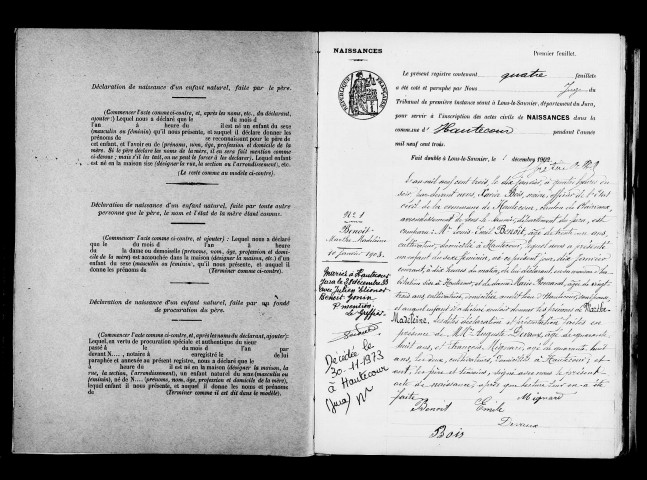 Déclaration de naissance d'un enfant naturel, faite par le père.
(Commencer l'acte comme ci-contre, et, après les noms, etc., du déclarant,
ajouter :) Lequel nous a déclaré que le du mois d
l'an à heure du il est né un enfant du sexe
(masculin ou féminin) qu'il nous présente, et auquel il déclare donner les
prénoms de se reconnaissant pour le père de
cet enfant, et l'avoir eu de (prénoms, nom, âge, profession et domicile de la
mère. Si le père déclare les noms de la mère, il en sera fait mention comme
ci-dessus ; mais s'il les tait, on ne peut le forcer à les déclarer). Lequel enfant
est né en la maison (désigner la rue, la section ou l'arrondissement), etc.
(Le reste comme au modèle ci-contre).
Déclaration de naissance d'un enfant naturel, faite par toute autre
personne que le père, le nom et l'état de la mère étant connus.
(Commencer comme ci-contre, et ajouter) : Lequel nous a déclaré
que le du mois d l'an à heure du
la dame ou demoiselle (prénoms, nom, âge, profession et domi-
cile de la mère) est accouchée dans la maison (désigner la maison), d'un
enfant du sexe (masculin ou féminin), qu'il nous présente, et auquel il
donne les prénoms de (Terminer comme ci-contre).
Déclaration de naissance d'un enfant naturel, faite par un fondé
de procuration du père.
(Commencer l'acte comme ci-contre, et, après le nom du déclarant, ajouter):
Lequel, en vertu de procuration spéciale et authentique du sieur
passé à le du mois d l'an par
devant N..., notaire à enregistré le de lui
paraphée et annexée au présent registre, nous a déclaré que le
à heure du il est né en la maison (désigner la maison, la
rue, la section, l'arrondissement), un enfant naturel du sexe (masculin ou
féminin), né de N... (prénoms, nom, âge, profession et domicile de la mère),
lequel enfant il nous présente, et auquel il donne les noms et prénoms
de (Terminer comme il est dit dans le modèle).
NAISSANCES
Premier feuillet.
RÉPUBLIQUE FRANÇAISE
Le présent registre contenant quatre feuillets
a été coté et paraphé par Nous Juge du
Tribunal de première instance séant à Lons-le-Saunier, département du Jura,
pour servir à l'inscription des actes civils de NAISSANCES dans la
commune d' Hautecour pendant l'année
mil neuf cent trois.
Fait double à Lons-le-Saunier, le décembre 1902
N° 1
Benoit
Marthe Madeleine
10 janvier 1903
Mariée à Hautecour
Jura le 31 décembre 33
avec Julien Eléonor
Benoit Gonin
P mention
Le Greffier
Décédée le
30-11-1973
à Hautecour
(Jura)
L'an mil neuf cent trois, le dix janvier, à quatre heures du
soir, par devant nous, Xavier Bois, maire, officier de l'Etat
civil de la commune de Hautecour, canton de Clairvaux,
arrondissement de Lons-le-Saunier, département du Jura, est
comparu Mr Louis Emile Benoit, âgé de trente un ans,
cultivateur, domicilié à Hautecour, lequel nous a présenté
un enfant du sexe féminin, né ce présent jour dix janvier
courant, à dix heures du matin,
de lui déclarant et de dame Marie , âgée de vingt
trois ans, cultivatrice,
et auquel enfant il a déclaré vouloir donner les prénoms de Marthe
Madeleine. Lesdites déclaration et présentation faites en
présence de Mrs Auguste Devaux, âgé de quarante
huit ans, et François Mignard, âgé de quarante huit
ans, les deux, cultivateurs, domiciliés à Hautecour ; et
ont, les père et témoins, signé avec nous le présent
acte de naissance, après que lecture leur en a été
faite. Mignard
Benoit Emile
Devaux
Bois